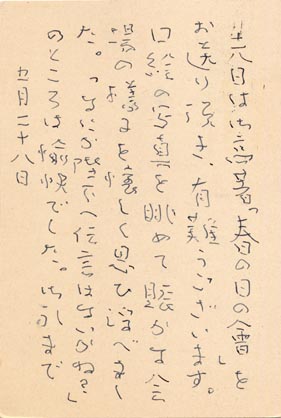 日は御高著「春の日の會」を
お送り頂き、有難うございます。
口絵の写真を眺めて賑かな会
場の様子を懐しく思ひ浮べまし
た。「なにか陛下へ伝言はないかね」
のところは愉快でした。御礼まで
五月二十八日